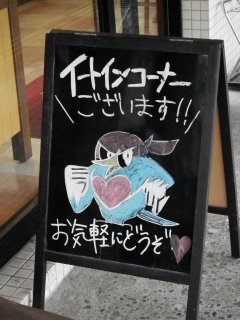 イートインコーナー
ございます!!
お気軽にどうぞ♥